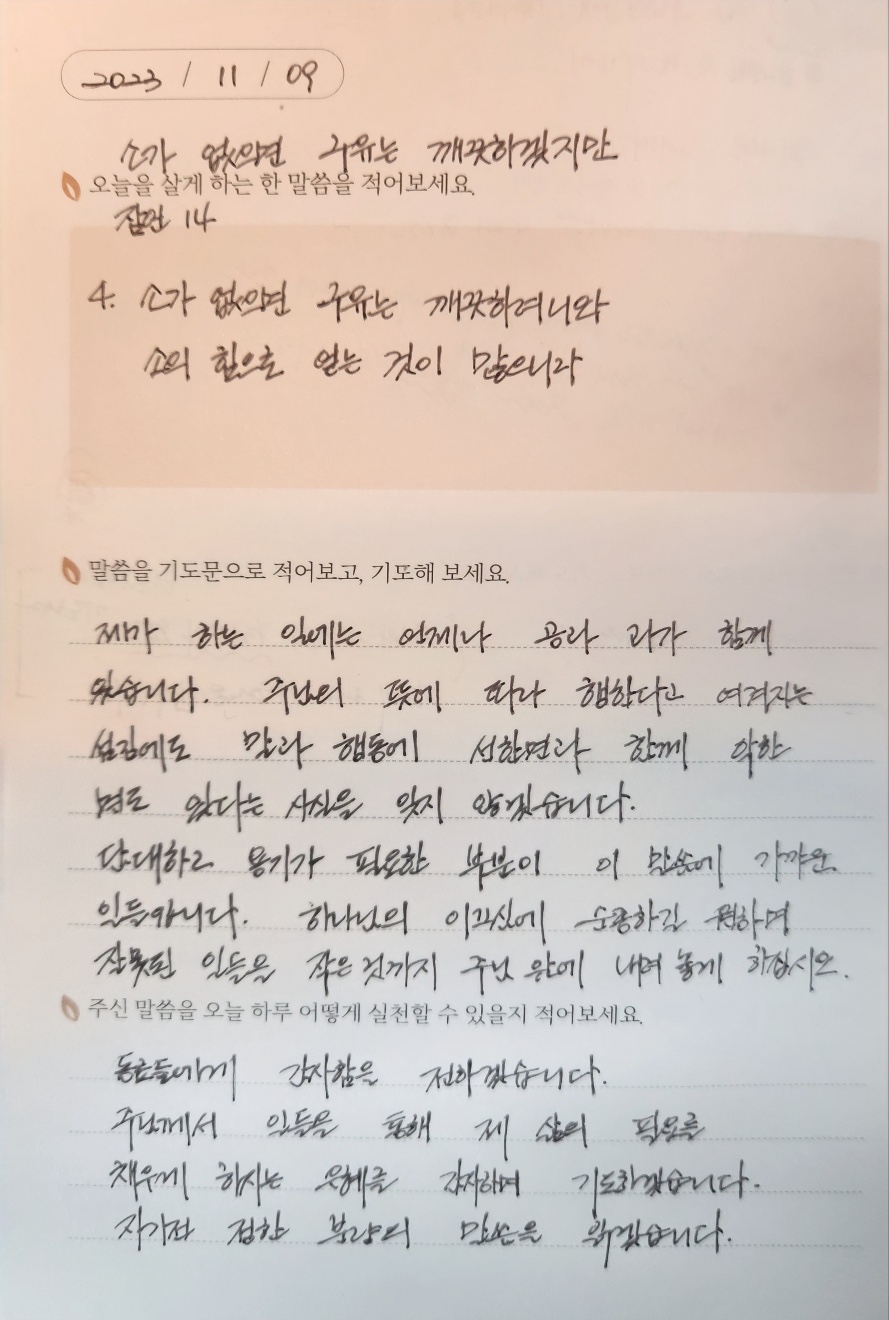 2023 / 11 / 09
소가 없으면 구유는 깨끗하겠지만
오늘을 살게 하는 한 말씀을 적어보세요.
잠언 14
4. 소가 없으면 구유는 깨끗하려니와
소의 힘으로 얻는 것이 많으니라
말씀을 기도문으로 적어보고, 기도해 보세요.
제가 하는 일에는 언제나 공과 과가 함께
있습니다. 주님의 뜻에 따라 행한다고 여겨지는
섬김에도 말과 행동에 선한면과 함께 악한
면도 있다는 사실을 잊지 않겠습니다.
담대하고 용기가 필요한 부분이 이 말씀에 가까운
일들입니다. 하나님의 이끄심에 순종하길 원하며
잘못된 일들을 작은것까지 주님 앞에 내려 놓게 하십시오.
주신 말씀을 오늘 하루 어떻게 실천할 수 있을지 적어보세요.
동료들에게 감사함을 전하겠습니다.
주님께서 일들을 통해 제 삶의 필요를
채우게 하시는 은혜를 감사하며 기도하겠습니다.
자기전 정한 분량의 말씀을 읽겠습니다.